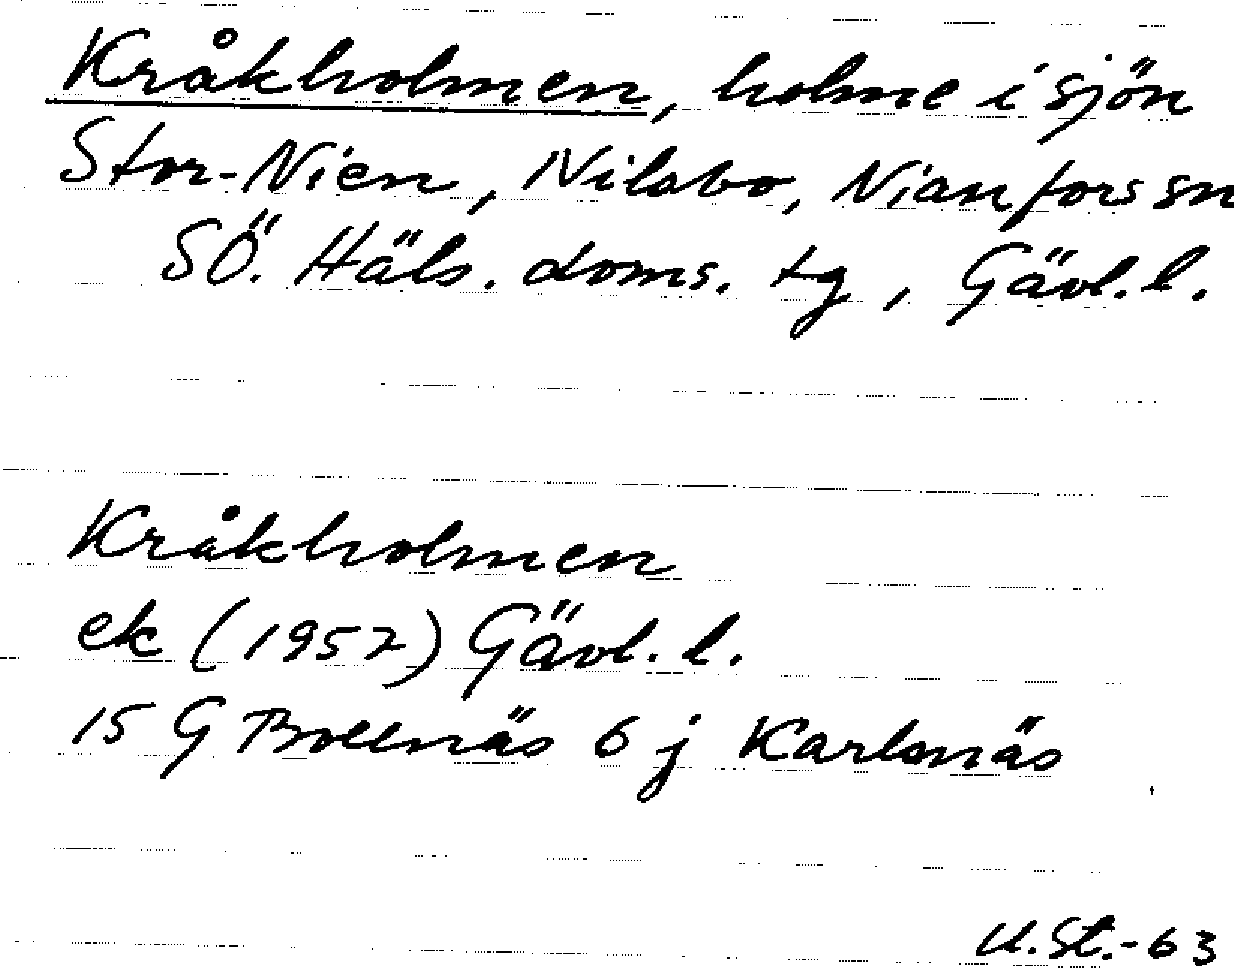 Kråkholmen, holme i sjön
Stor-Nien, Nilsbo, Nianfors sn
SÖ. Häls. doms. tg, Gävl. l.
Kråkholmen
ek (1957) Gävl. l.
15 G Bollnäs 6 j Karlsnäs
U.St.-63